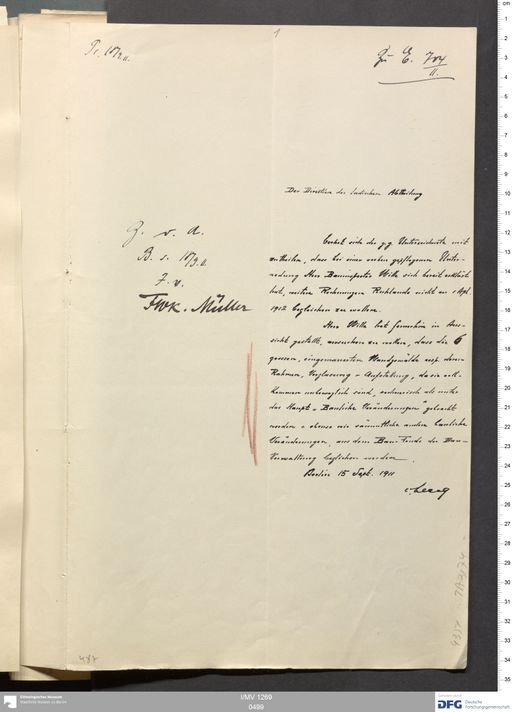 Pr. 18/9 11.
1
Zu E. 704
11.
Der Direktion der Indischen Abtheilung
beehrt sich der g. g. Unterzeichnete mit-
zutheilen, dass bei einer soeben gepflogenen Unter-
redung Herr Bauinspector Wille sich bereit erklärt
hat, weitere Rechnungen nicht an 1 Apl.
1912 begleichen zu wollen.
Herr Wille hat fernerhin in Aus-
sicht gestellt, versuchen zu wollen, dass die 6
grossen, eingemauerten Wandgemälde resp. deren
Rahmen, Verglasung u Aufstellung, da sie voll-
kommen unbeweglich sind, technisch als unter
das Haupt "Bauliche Veränderungen" gebracht
werden u ebenso wie sämmtliche andere bauliche
Veränderungen, aus dem Bau-Fonds der Bau-
Verwaltung beglichen werden.
Berlin 15 Sept. 1911
v. Lecoq
Z. d. A.
B. d. 18/9 11.
J. V.
FWK. Müller
487
I/MV 1269
0499
Ethnologisches Museum
Staatliche Museen zu Berlin
DFG Deutsche
Forschungsgemeinschaft